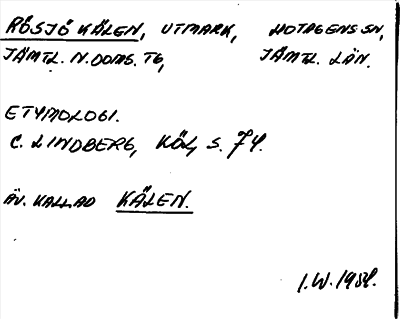 RÖSJÖ KÄLEN, UTMARK, HOTAGENS SN,
JÄMTL. N. DOMS. TG, JÄMTL. LÄN.
ETYMOLOGI.
C. LINDBERG, KÖL, S. 74.
ÄV. KALLAD KÄLEN.
I.W. 1984.